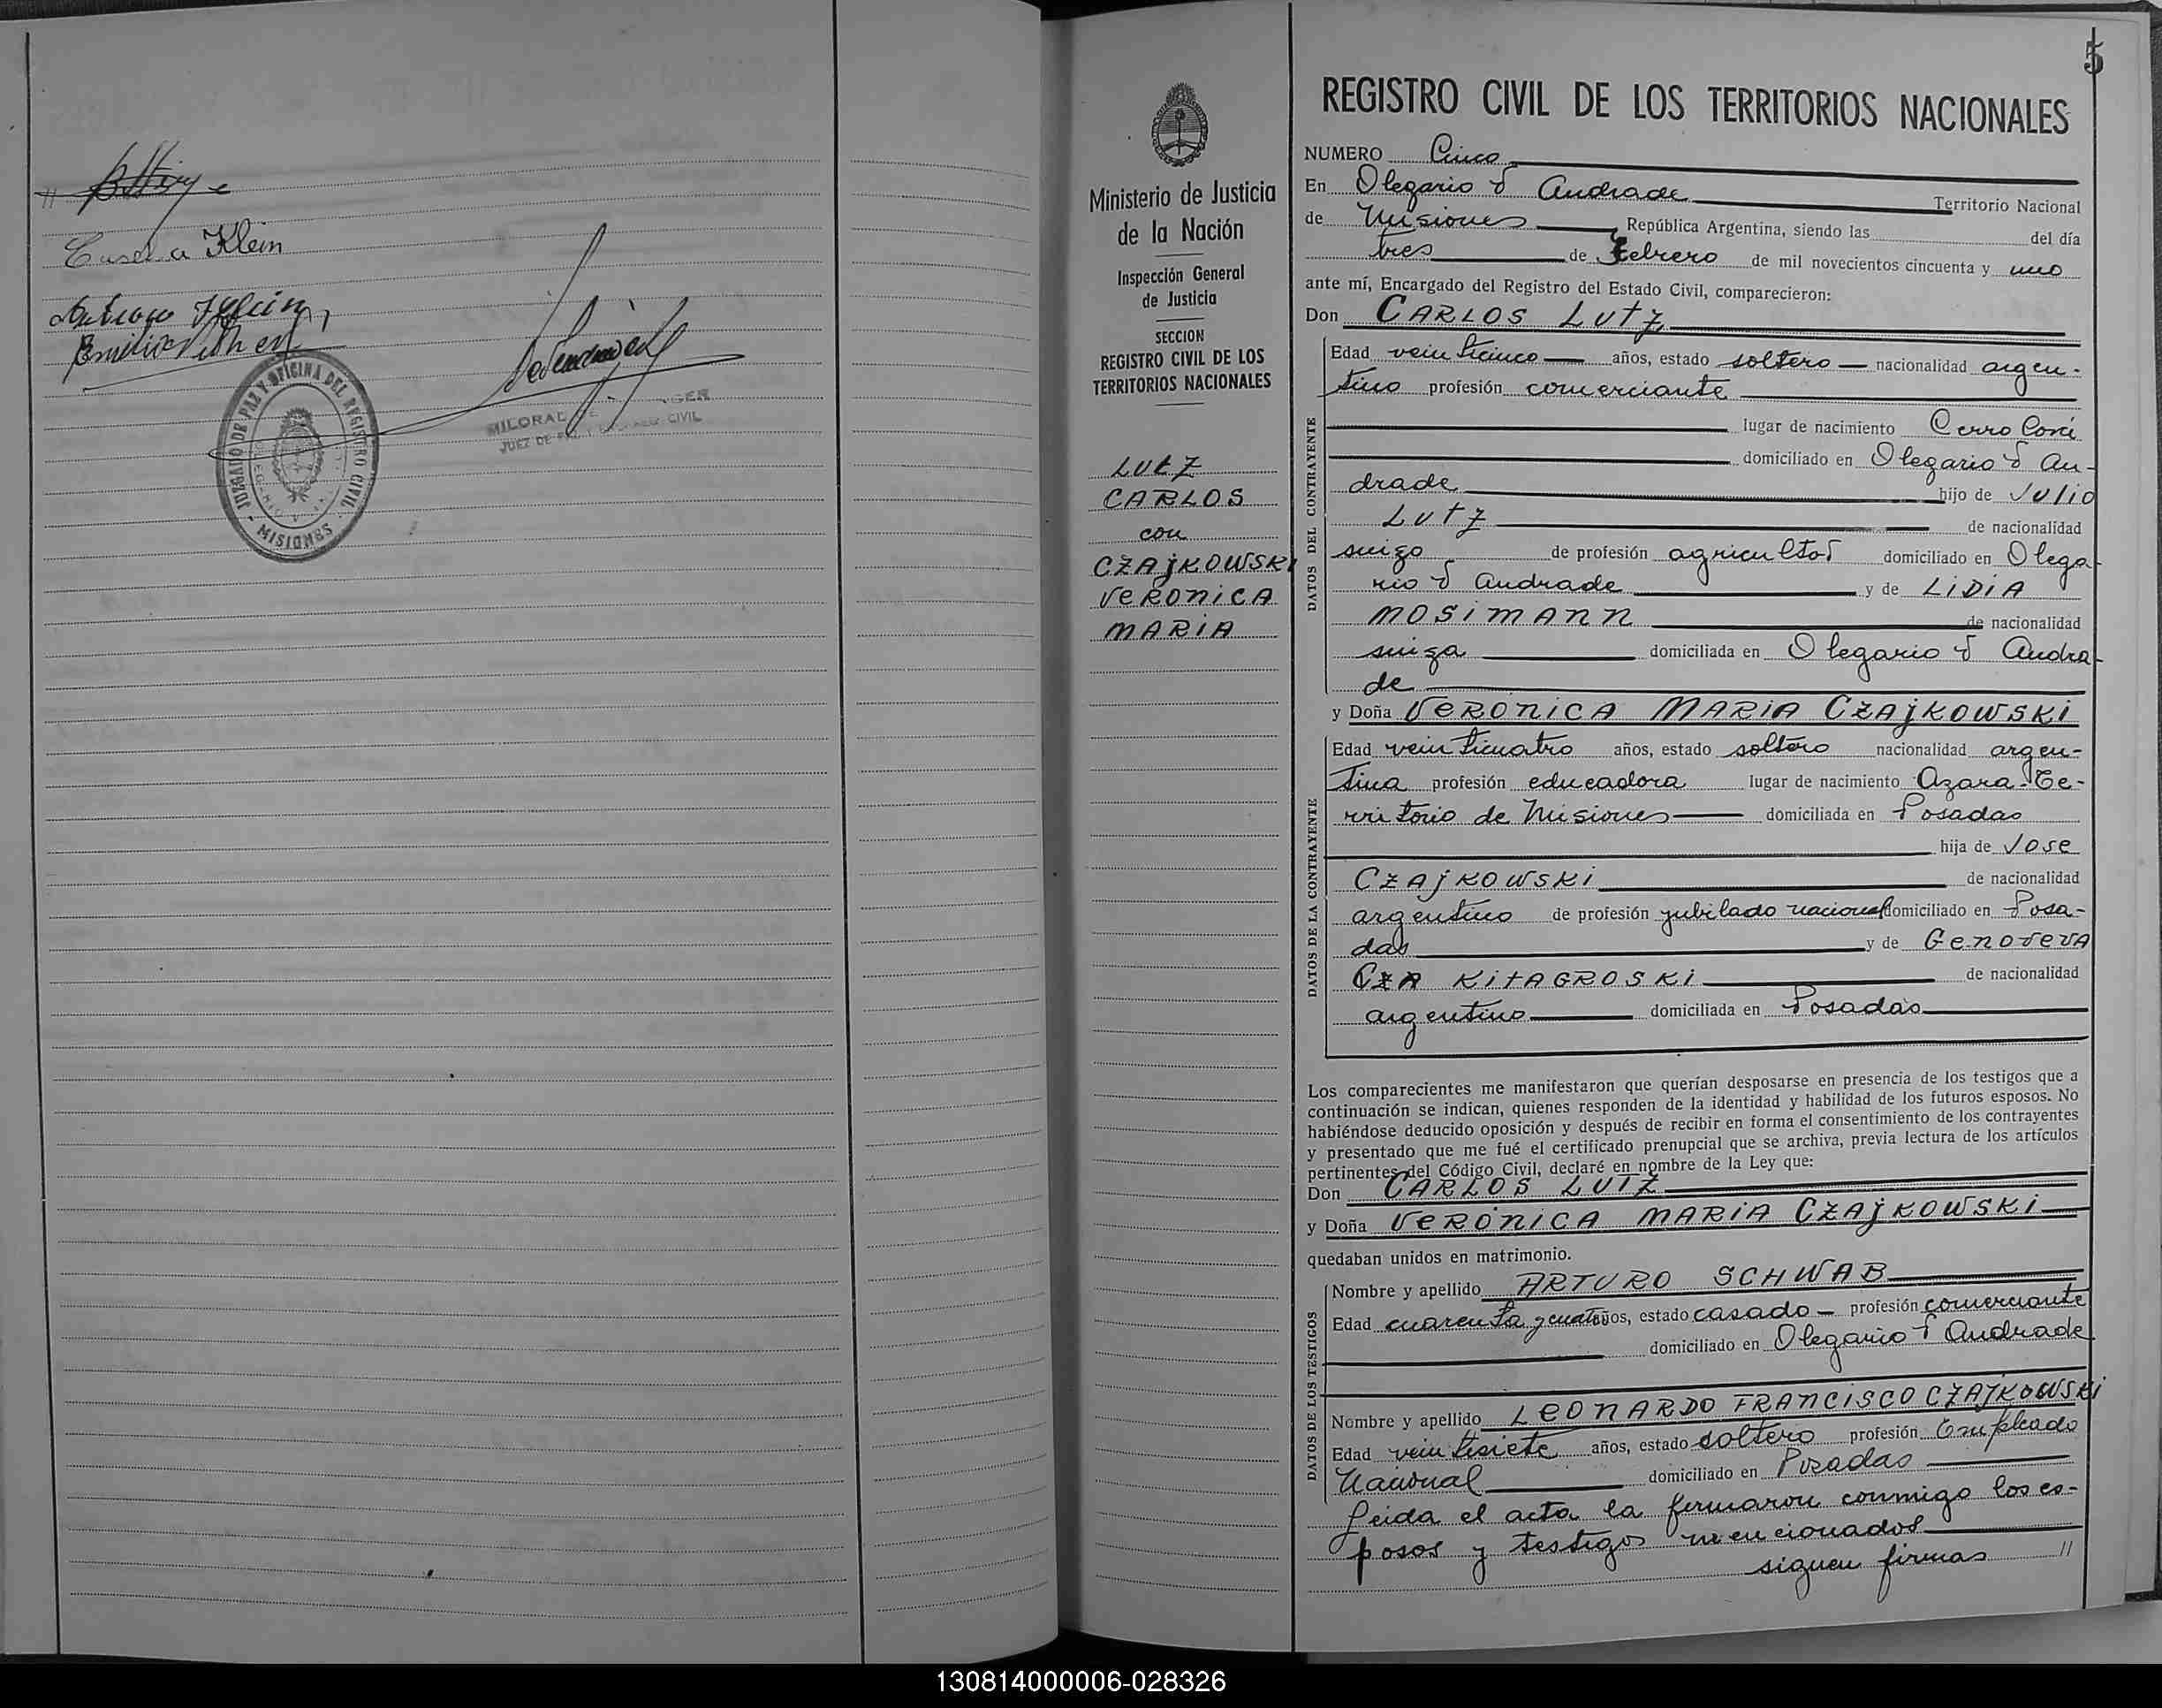 Klein
Klein
Emilio
JUZGADO DE PAZ Y OFICINA DEL REGISTRO CIVIL
- MISIONES -
MILORAD
JUEZ DE PAZ CIVIL
5
Ministerio de Justicia
de la Nación
Inspección General
de Justicia
SECCION
REGISTRO CIVIL DE LOS
TERRITORIOS NACIONALES
LUTZ
CARLOS
con
CZAJKOWSKI
VERONICA
MARIA
REGISTRO CIVIL DE LOS TERRITORIOS NACIONALES
NUMERO Cinco
En Olegario V Andrade Territorio Nacional
de Misiones, República Argentina, siendo las del día
tres de Febrero de mil novecientos cincuenta y uno
ante mí, Encargado del Registro del Estado Civil, comparecieron:
Don CARLOS LUTZ
DATOS DEL CONTRAYENTE
Edad veinticinco años, estado soltero nacionalidad argen-
tino profesión comerciante
lugar de nacimiento Cerro Corá
domiciliado en Olegario V An-
drade hijo de JULIO
LUTZ de nacionalidad
suizo de profesión agricultor domiciliado en Olega-
rio V Andrade y de LIDIA
MOSIMANN de nacionalidad
suiza domiciliada en Olegario V Andra-
de
y Doña VERONICA MARIA CZAJKOWSKI
DATOS DE LA CONTRAYENTE
Edad veinticuatro años, estado soltero nacionalidad argen-
tina profesión educadora lugar de nacimiento Azara-Te-
rritorio de Misiones domiciliada en Posadas
hija de JOSE
CZAJKOWSKI de nacionalidad
argentino de profesión jubilado nacional domiciliado en Posa-
das y de GENOVEVA
CZA KITAGROSKI de nacionalidad
argentino domiciliada en Posadas
Los comparecientes me manifestaron que querían desposarse en presencia de los testigos que a
continuación se indican, quienes responden de la identidad y habilidad de los futuros esposos. No
habiéndose deducido oposición y después de recibir en forma el consentimiento de los contrayentes
y presentado que me fué el certificado prenupcial que se archiva, previa lectura de los artículos
pertinentes del Código Civil, declaré en nombre de la Ley que:
Don CARLOS LUTZ
y Doña VERONICA MARIA CZAJKOWSKI
quedaban unidos en matrimonio.
DATOS DE LOS TESTIGOS
Nombre y apellido ARTURO SCHWAB
Edad cuarenta y cuatro años, estado casado profesión comerciante
domiciliado en Olegario V Andrade
Nombre y apellido LEONARDO FRANCISCO CZAJKOWSKI
Edad veintisiete años, estado soltero profesión Empleado
Nacional domiciliado en Posadas
Leida el acta la firmaron conmigo los es-
posos y testigos mencionados
siguen firmas //
130814000006-028326